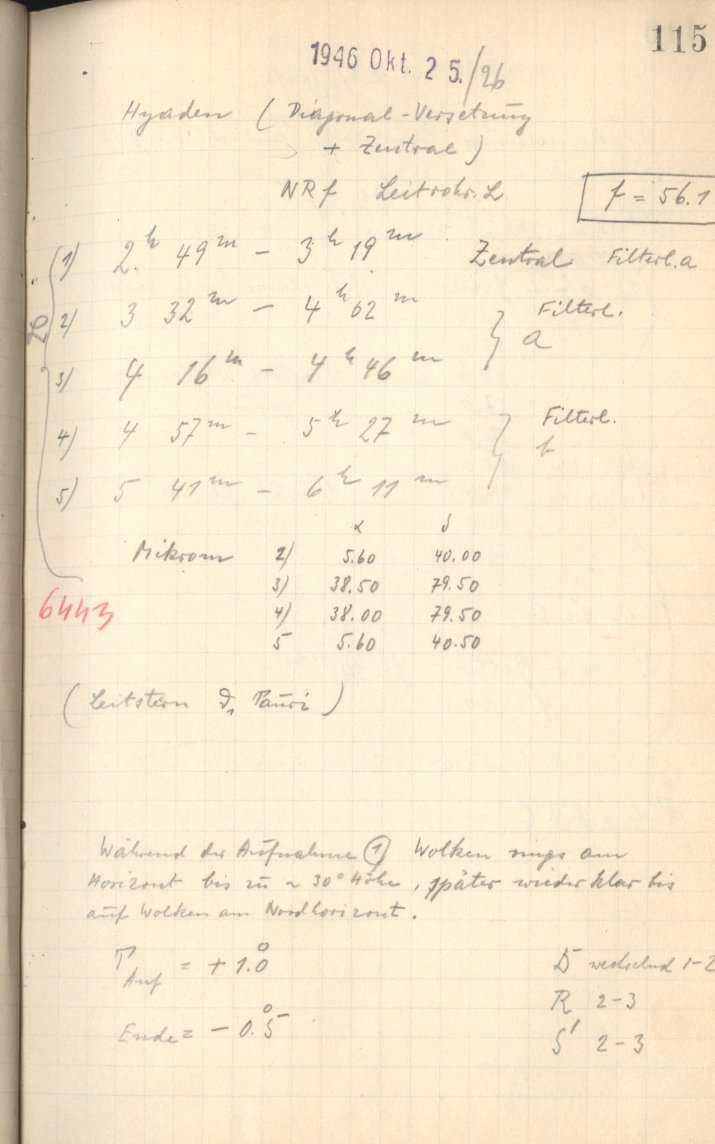 115
1946 Okt. 25./26
Hyaden (Diagonal-Versetzung
+ Zentral)
NRf Leitrohr. L
f = 56.1
1) 2h 49m - 3h 19m Zentral Filterl. a
2) 3 32m - 4h 02m Filterl.
a
3) 4 16m - 4h 46m
26
4) 4 57m - 5h 27m Filterl.
b
5) 5 41m - 6h 11m
α δ
Mikrom 2) 5.60 40.00
3) 38.50 79.50
4) 38.00 79.50
5 5.60 40.50
6443
(Leitstern ϑ1 Tauri)
Während der Aufnahme 1 Wolken rings am
Horizont bis zu ~ 30° Höhe, später wieder klar bis
auf Wolken am Nordhorizont.
T Anf = + 1.°0
Ende = - 0.°5
D wechselnd 1-2
R 2-3
S 2-3